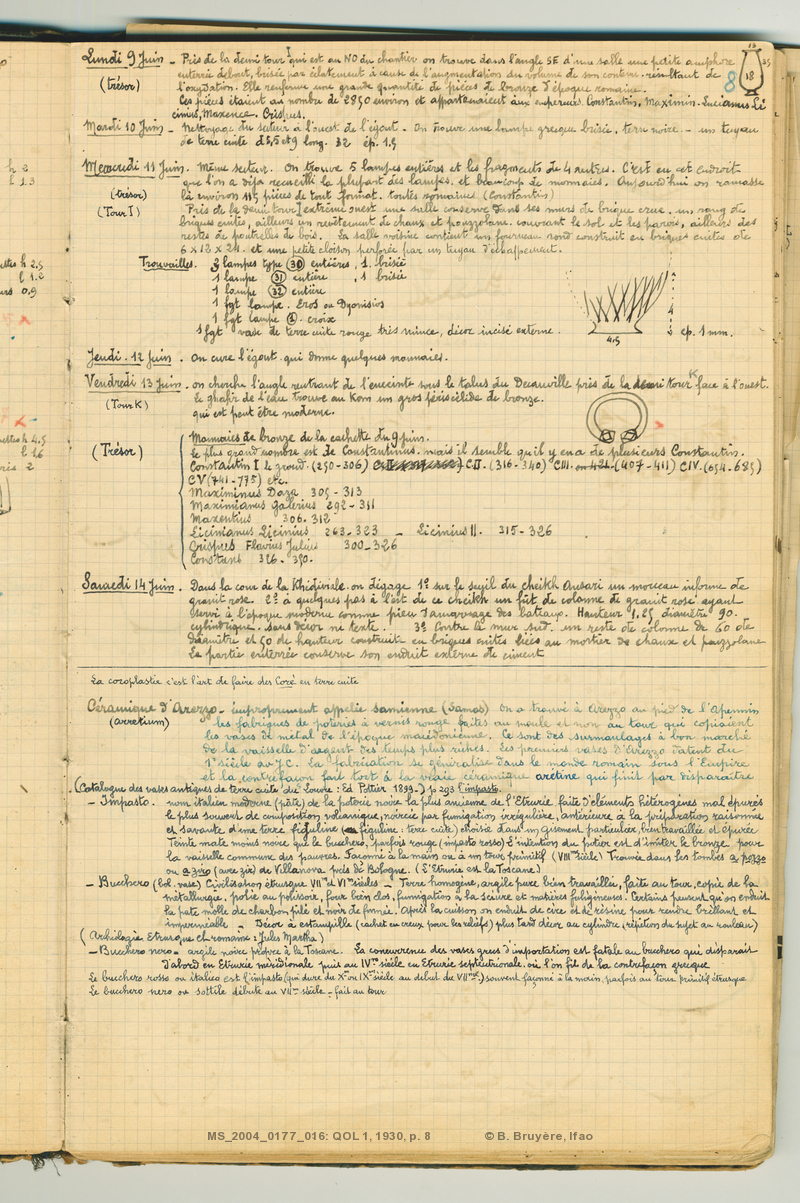 Lundi 9 Juin - Près de la demi tour I qui est au NO du chantier on trouve dans l'angle SE d'une salle une petite amphore
enterrée debout, brisée par éclatement à cause de l'augmentation du volume de son contenu résultant de
(trésor) l'oxydation. Elle renferme une grande quantité de pièces de bronze d'époque romaine.
8
18
Ces pièces étaient au nombre de 2850 environ et appartenaient aux empereurs Constantin, Maximin. Licianus Li
cinius, Maxence, Crispus.
Mardi 10 Juin - Nettoyage du secteur à l'ouest de l'égout. On trouve une lampe grecque brisée, terre noire. - un tuyau
de terre cuite d 5,5 et 9 long. 32 ép. 1.5
Mercredi 11 Juin. Même secteur. On trouve 5 lampes entières et les fragments de 4 autres. C'est en cet endroit
que l'on a déjà recueilli la plupart des lampes et beaucoup de monnaies. Aujourd'hui on ramasse
(trésor) là environ 115 pièces de tout format, toutes romaines (Constantin)
(Tour I) Près de la demi tour I extrême ouest une salle conserve dans ses murs de brique crue, un rang de
briques cuites, ailleurs un revêtement de chaux et pouzzolane couvrant le sol et les parois, ailleurs des
restes de poutrelles de bois. La salle voisine contient un fourneau rond construit en briques cuites de
6 x 12 x 24. et une petite cloison perforée par un tuyau d'échappement.
Trouvailles. 3 lampes type (30) entières, 1 brisée
1 lampe (31) entière, 1 brisée
1 lampe (32) entière
1 fgt lampe. Eros ou Dyonisios
1 fgt lampe croix
1 fgt vase de terre cuite rouge très mince, décor incisé externe.
4.5
ép. 1 mm.
Jeudi. 12 Juin. On cure l'égout qui donne quelques monnaies.
Vendredi 13 Juin. on cherche l'angle rentrant de l'enceinte sous le talus du Decauville près de la demi tour K face à l'ouest.
(Tour K) Le ghafir de l'eau trouve au Kom un gros périscélide de bronze.
qui est peut être moderne.
(Trésor) Monnaies de bronze de la cachette du 9 juin.
Le plus grand nombre est de Constantinus. mais il semble qu'il y en a de plusieurs Constantin.
Constantin I le grand. (250-306) CII. (316-340) CIII. (407-411) CIV. (654-685)
CV (741-775) etc.
Maximinus Daza 305-313
Maximianus Galerius 292-311
Maxentius 306.312
Licinianus Licinius 263-323 - Licinius II. 315-326
Crispus Flavius Julius 300-326
Constans 326-350.
Samedi 14 Juin. Dans la cour de la Khédiviale on dégage 1° sur le seuil du cheikh Ansari un morceau informe de
granit rose 2° à quelques pas à l'est de ce cheikh un fût de colonne de granit rose ayant
servi à l'époque moderne comme pieu d'amarrage des bateaux. Hauteur 1,25 diamètre 90.
cylindrique. sans décor ni texte. 3° Contre le mur sud. un reste de colonne de 60 de
diamètre et 50 de hauteur construite en briques cuites liées au mortier de chaux et pouzzolane
La partie enterrée conserve son enduit externe de ciment
La coroplastie c'est l'art de faire des Coré en terre cuite
Céramique d'Arezzo - improprement appelée samienne (Samos) On a trouvé à Arezzo au pied de l'Apennin
(Arretium) les fabriques de poteries à vernis rouge faites au moule et non au tour qui copiaient
les vases de métal de l'époque macédonienne. Ce sont des surmoulages à bon marché
de la vaisselle d'argent des temps plus riches. Les premiers vases d'Arezzo datent du
1er siècle av J.C. La fabrication se généralise dans le monde romain sous l'Empire
et la contrefaçon fait tort à la vraie céramique arétine qui finit par disparaître
(Catalogue des vases antiques de terre cuite du Louvre: Ed Pottier 1899-) p 293 l'impasto.
- Impasto. nom italien moderne (pâte) de la poterie noire la plus ancienne de l'Etrurie faite d'éléments hétérogènes mal épurés
le plus souvent de composition volcanique, noircie par fumigation irrégulière, antérieure à la préparation raisonnée
et savante d'une terre figuline (figuline: terre cuite) choisie dans un gisement particulier, bien travaillée et épurée
Teinte mate moins noire que le bucchero, parfois rouge (impasto rosso) L'intention du potier est d'imiter le bronze pour
la vaisselle commune des pauvres. Façonné à la main ou à un tour primitif (VIIIme siècle) Trouvée dans les tombes a pozzo
ou a ziro (avec zir) de Villanova près de Bologne. (L'Etrurie est la Toscane)
- Bucchero (bol. vase) Civilisation étrusque VIIme et VIe siècles - Terre homogène, argile pure bien travaillée, faite au tour, copie de la
métallurgie, polie au polissoir, four bien clos, fumigation à la sciure et matières fuligineuses. Certains pensent qu'on enduit
la pâte molle de charbon pilé et noir de fumée. Après la cuisson on enduit de cire et de résine pour rendre brillant et
imperméable - Décor à estampille (cachet en creux pour les reliefs) plus tard décor au cylindre (répétition du sujet au rouleau)
(Archéologie Etrusque et romaine: Jules Martha)
- Bucchero nero - argile noire propre à la Toscane. La concurrence des vases grecs d'importation est fatale au bucchero qui disparait
d'abord en Etrurie méridionale puis au IVme siècle en Etrurie septentrionale où l'on fit de la contrefaçon grecque
Le bucchero rosso ou italico est l'impasto (qui dure du Xe ou IXe siècle au début du VIIme) souvent façonné à la main, parfois au tour primitif étrusque
Le bucchero nero ou sottile débute au VIIme siècle - fait au tour.
MS_2004_0177_016: QOL 1, 1930, p. 8 © B. Bruyère, Ifao